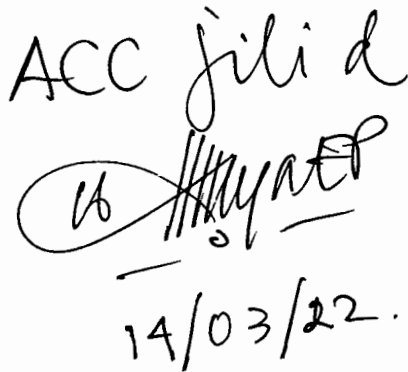 ACC jilid
14/03/22.